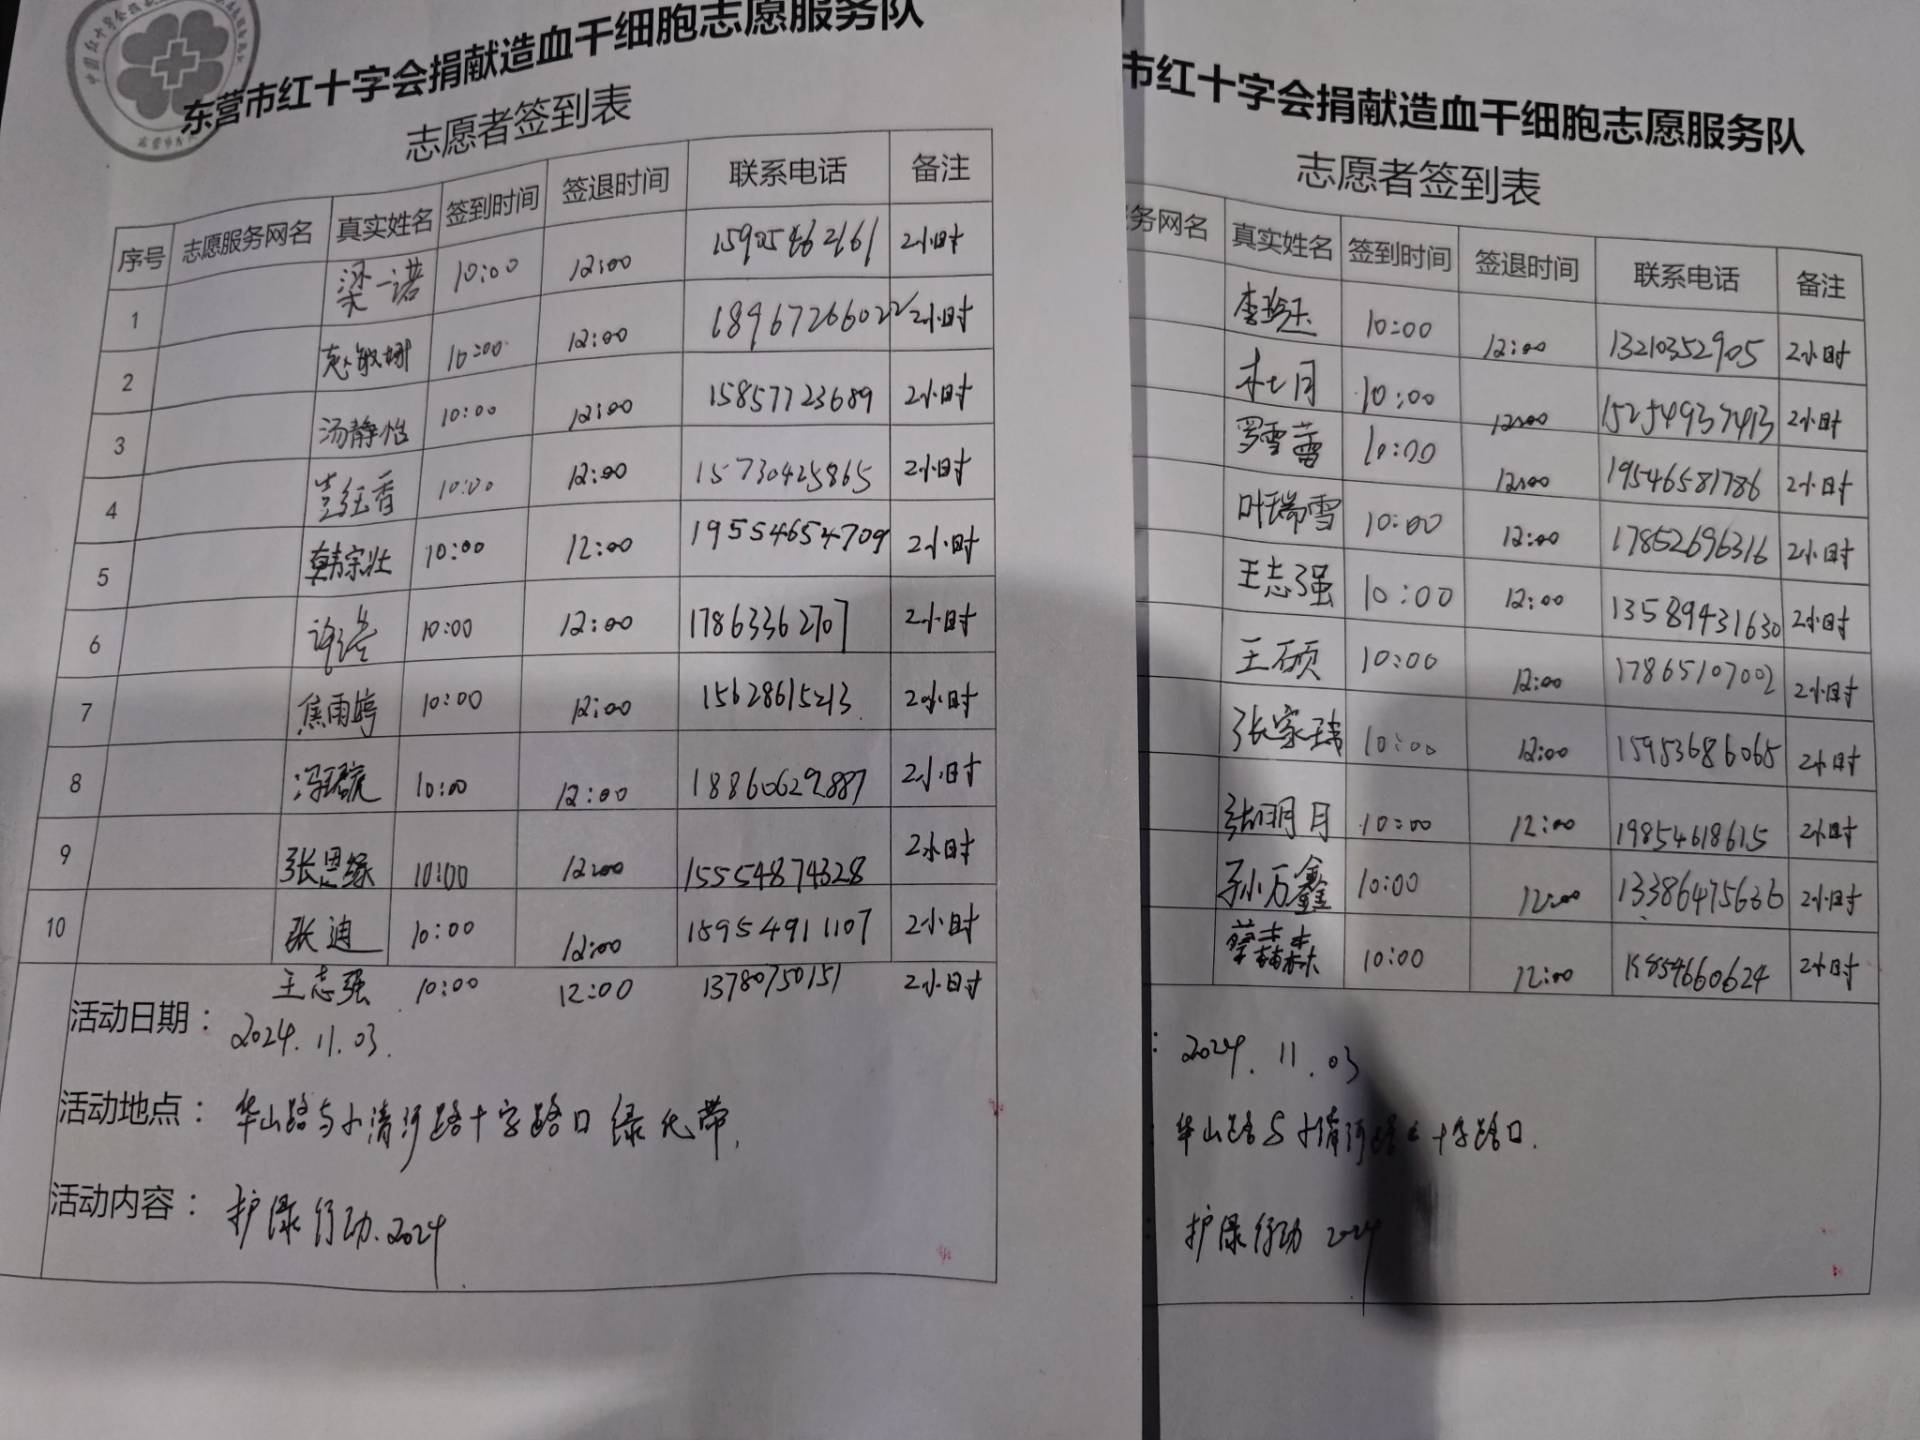 东营市红十字会捐献造血干细胞志愿服务队
志愿者签到表
序号 志愿服务网名 真实姓名 签到时间 签退时间 联系电话 备注
1 梁一诺 10:00 12:00 15905462161 2小时
2 敏娜 10:00 12:00 18967266022 2小时
3 汤静怡 10:00 12:00 15857723689 2小时
4 彭红香 10:00 12:00 15730425865 2小时
5 韩宗壮 10:00 12:00 19554654709 2小时
6 10:00 12:00 17863362707 2小时
7 焦雨婷 10:00 12:00 15628615213 2小时
8 10:00 12:00 18860629887 2小时
9 张恩缘 10:00 12:00 15554874328 2小时
10 张迪 10:00 12:00 15954911107 2小时
王志强 10:00 12:00 13780750151 2小时
活动日期： 2024.11.03.
活动地点： 华山路与小清河路十字路口绿化带.
活动内容： 护绿行动.2024
市红十字会捐献造血干细胞志愿服务队
志愿者签到表
务网名 真实姓名 签到时间 签退时间 联系电话 备注
10:00 12:00 13210352905 2小时
杜月 10:00 12:00 15254937413 2小时
罗雪蕾 10:00 12:00 19546581786 2小时
叶瑞雪 10:00 12:00 17852696316 2小时
王志强 10:00 12:00 13589431630 2小时
王硕 10:00 12:00 17865107002 2小时
张家玮 10:00 12:00 15953686065 2小时
张明月 10:00 12:00 19854618615 2小时
孙万鑫 10:00 12:00 2小时
蔡森 10:00 12:00 2小时
: 2024.11.03
: 华山路与小清河路十字路口.
: 护绿行动 2024